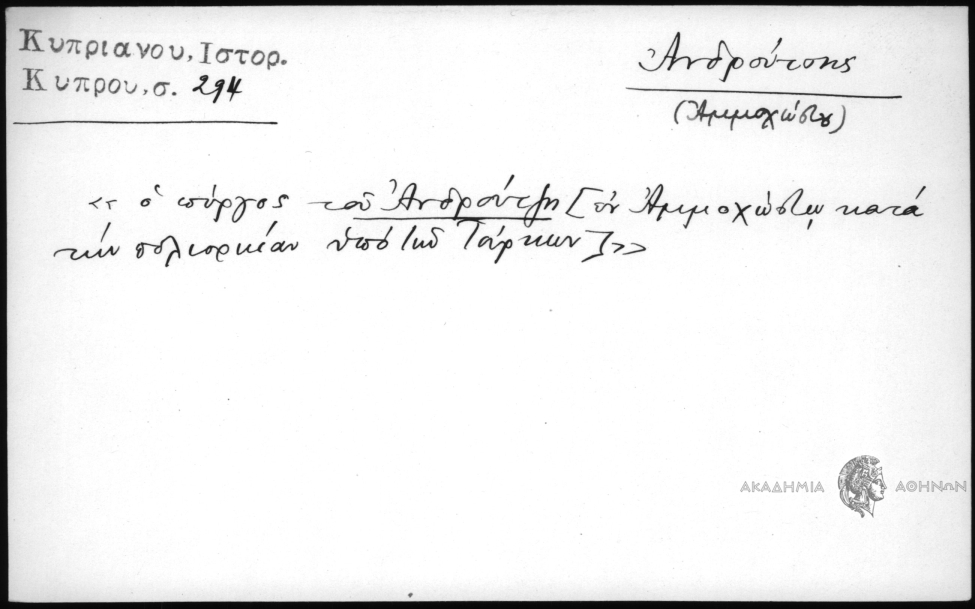 Κυπριανου, Ιστορ.
Κυπρου, σ. 294
Ἀνδρούτσης
(Ἀμμοχώστου)
«ὁ πύργος τοῦ Ἀνδρούτζη [ἐν Ἀμμοχώστῳ κατὰ
τὴν πολιορκίαν ὑπὸ τῶν Τούρκων]»
ΑΚΑΔΗΜΙΑ ΑΘΗΝΩΝ